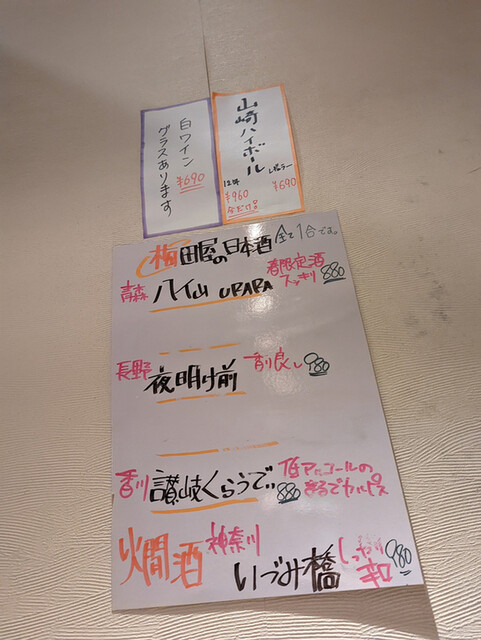 山崎ハイボール
レギュラー
¥690
12年
¥960
今だけ!!
白ワイン
¥690
グラスあります
梅田屋の日本酒 全て1合です。
青森 八仙 URARA 春限定酒
スッキリ 880
長野 夜明け前 香り良し 980
香川 讃岐くらうでぃ 880 低アルコールの
まるでカルピス
燗酒 神奈川 いづみ橋 しっかり
辛口 980